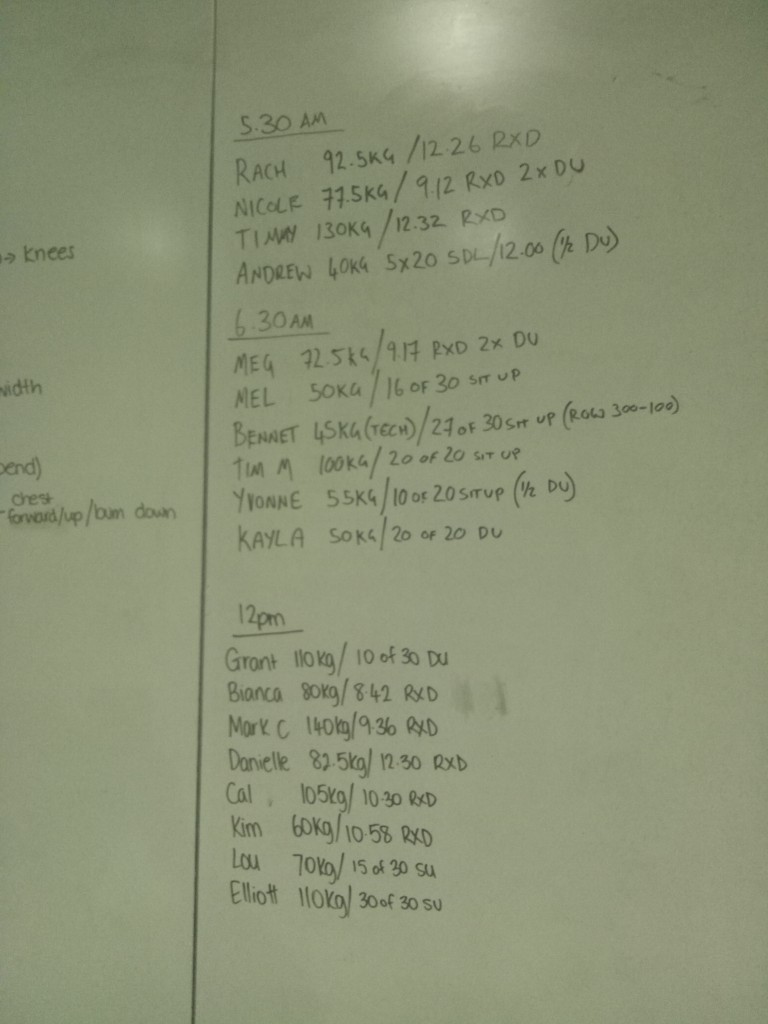 → knees
width
bend)
- chest
forward/up/bum down
5.30 AM
RACH 92.5KG /12.26 RXD
NICOLE 77.5KG/ 9.12 RXD 2x DU
TIMMY 130KG/12.32 RXD
ANDREW 40KG 5x20 SDL/12.00 (1/2 DU)
6.30AM
MEG 72.5KG/9.17 RXD 2x DU
MEL 50KG/16 OF 30 SIT UP
BENNET 45KG(TECH)/27 OF 30 SIT UP (ROW 300-100)
TIM M 100KG/ 20 OF 20 SIT UP
YVONNE 55KG/10 OF 20 SIT UP (1/2 DU)
KAYLA 50KG/20 OF 20 DU
12pm
Grant 110kg/ 10 of 30 DU
Bianca 80kg/8.42 RXD
Mark C 140kg/9.36 RXD
Danielle 82.5kg/ 12.30 RXD
Cal 105kg/ 10.30 RXD
Kim 60kg/10.58 RXD
Lou 70kg/ 15 of 30 SU
Elliott 110kg/ 30 of 30 SU